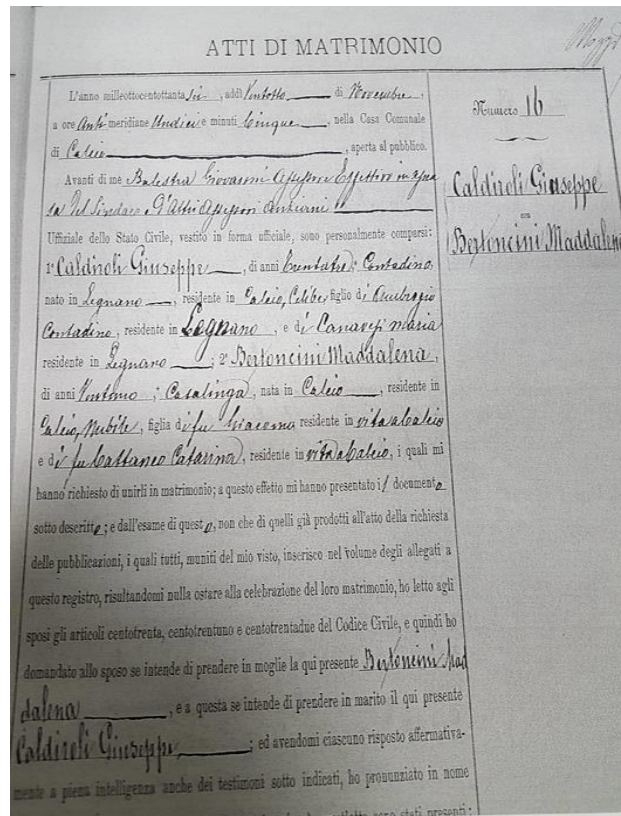 ATTI DI MATRIMONIO
L'anno milleottocentottanta sei, addì Ventotto di Novembre,
a ore Anti meridiane Undici e minuti Cinque, nella Casa Comunale
di Calcio, aperta al pubblico.
Avanti di me Balestra Giovanni Assessore Effettivo in
sa del Sindaco e d'Altri Assessori Anziani
Uffiziale dello Stato Civile, vestito in forma ufficiale, sono personalmente comparsi:
1º Caldiroli Giuseppe, di anni trentatre, Contadino,
nato in Legnano, residente in Calcio, Celibe, figlio di Ambrogio
Contadino, residente in Legnano, e di Canavesi Maria
residente in Legnano; 2º Bertoncini Maddalena,
di anni Ventuno; Casalinga, nata in Calcio, residente in
Calcio, Nubile, figlia di fu Giacomo residente in vita a Calcio
e di fu Cattaneo Catarina, residente in vita a Calcio, i quali mi
hanno richiesto di unirli in matrimonio; a questo effetto mi hanno presentato il documento
sotto descritto; e dall'esame di questo, non che di quelli già prodotti all'atto della richiesta
delle pubblicazioni, i quali tutti, muniti del mio visto, inserisco nel volume degli allegati a
questo registro, risultandomi nulla ostare alla celebrazione del loro matrimonio, ho letto agli
sposi gli articoli centotrenta, centotrentuno e centotrentadue del Codice Civile, e quindi ho
domandato allo sposo se intende di prendere in moglie la qui presente Bertoncini Mad
dalena, e a questa se intende di prendere in marito il qui presente
Caldiroli Giuseppe; ed avendomi ciascuno risposto affermativa-
mente a piena intelligenza anche dei testimoni sotto indicati, ho pronunziato in nome
sono stati presenti:
Numero 16
Caldiroli Giuseppe
con
Bertoncini Maddalena